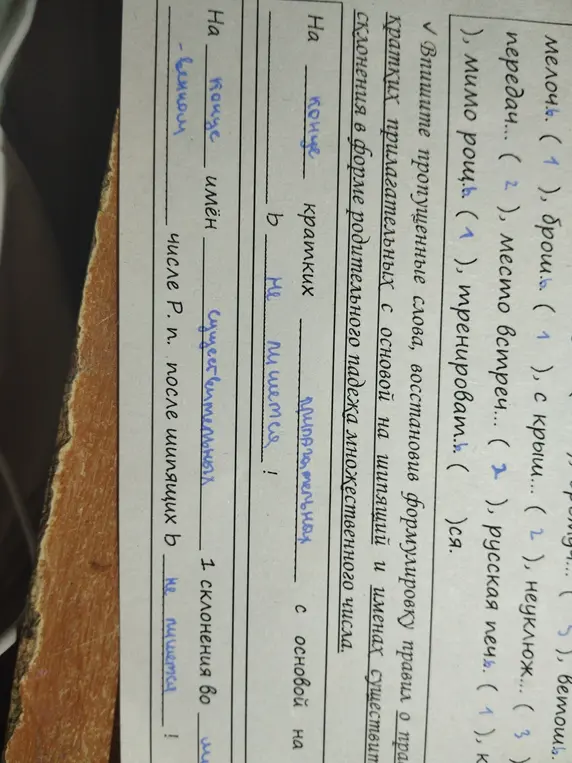 ветошь.
мелочь. ( 1 ), брошь ( 1 ), с крыш... ( 2 ), неуклюж... ( 3 )
передач... ( 2 ), место встреч... ( 2 ), русская печь. ( 1 ),
), мимо рощ.ь ( 1 ), тренироват.ь ( )ся.
✓ Впишите пропущенные слова, восстановив формулировку правил о
кратких прилагательных с основой на шипящий и именах
склонения в форме родительного падежа множественного числа.
На конце кратких прилагательной с основой на
ь не пишется!
На конце имён существительных 1 склонения во
-венном числе Р. п. после шипящих ь не пишется!